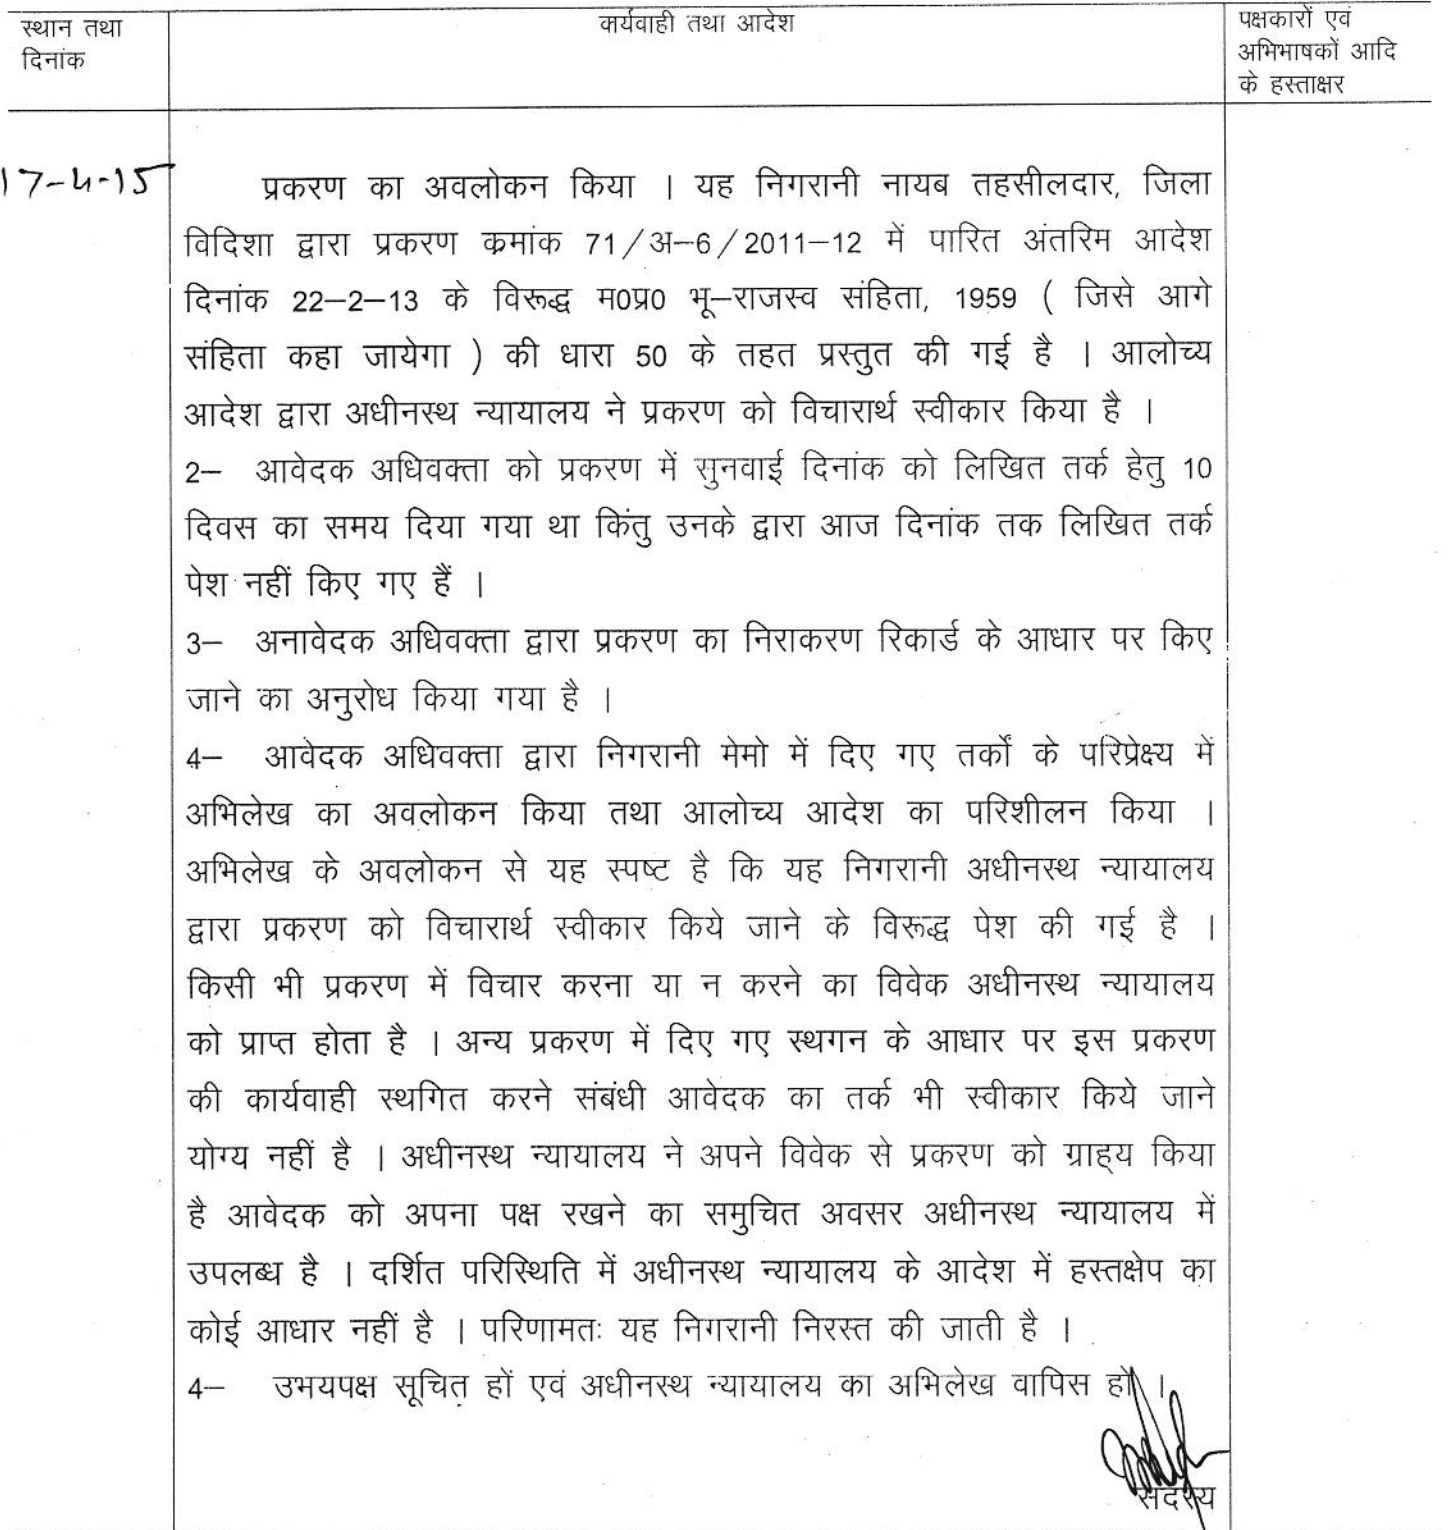 स्थान तथा
दिनांक
कार्यवाही तथा आदेश
पक्षकारों एवं
अभिभाषकों आदि
के हस्ताक्षर
17-4-15
प्रकरण का अवलोकन किया । यह निगरानी नायब तहसीलदार, जिला
विदिशा द्वारा प्रकरण क्रमांक 71/अ–6/2011–12 में पारित अंतरिम आदेश
दिनांक 22–2–13 के विरूद्ध म0प्र0 भू–राजस्व संहिता, 1959 ( जिसे आगे
संहिता कहा जायेगा ) की धारा 50 के तहत प्रस्तुत की गई है । आलोच्य
आदेश द्वारा अधीनस्थ न्यायालय ने प्रकरण को विचारार्थ स्वीकार किया है ।
2– आवेदक अधिवक्ता को प्रकरण में सुनवाई दिनांक को लिखित तर्क हेतु 10
दिवस का समय दिया गया था किंतु उनके द्वारा आज दिनांक तक लिखित तर्क
पेश नहीं किए गए हैं ।
3– अनावेदक अधिवक्ता द्वारा प्रकरण का निराकरण रिकार्ड के आधार पर किए
जाने का अनुरोध किया गया है ।
4– आवेदक अधिवक्ता द्वारा निगरानी मेमो में दिए गए तर्कों के परिप्रेक्ष्य में
अभिलेख का अवलोकन किया तथा आलोच्य आदेश का परिशीलन किया ।
अभिलेख के अवलोकन से यह स्पष्ट है कि यह निगरानी अधीनस्थ न्यायालय
द्वारा प्रकरण को विचारार्थ स्वीकार किये जाने के विरूद्ध पेश की गई है ।
किसी भी प्रकरण में विचार करना या न करने का विवेक अधीनस्थ न्यायालय
को प्राप्त होता है । अन्य प्रकरण में दिए गए स्थगन के आधार पर इस प्रकरण
की कार्यवाही स्थगित करने संबंधी आवेदक का तर्क भी स्वीकार किये जाने
योग्य नहीं है । अधीनस्थ न्यायालय ने अपने विवेक से प्रकरण को ग्राह्य किया
है आवेदक को अपना पक्ष रखने का समुचित अवसर अधीनस्थ न्यायालय में
उपलब्ध है । दर्शित परिस्थिति में अधीनस्थ न्यायालय के आदेश में हस्तक्षेप का
कोई आधार नहीं है । परिणामतः यह निगरानी निरस्त की जाती है ।
4– उभयपक्ष सूचित हों एवं अधीनस्थ न्यायालय का अभिलेख वापिस हो ।
सदस्य